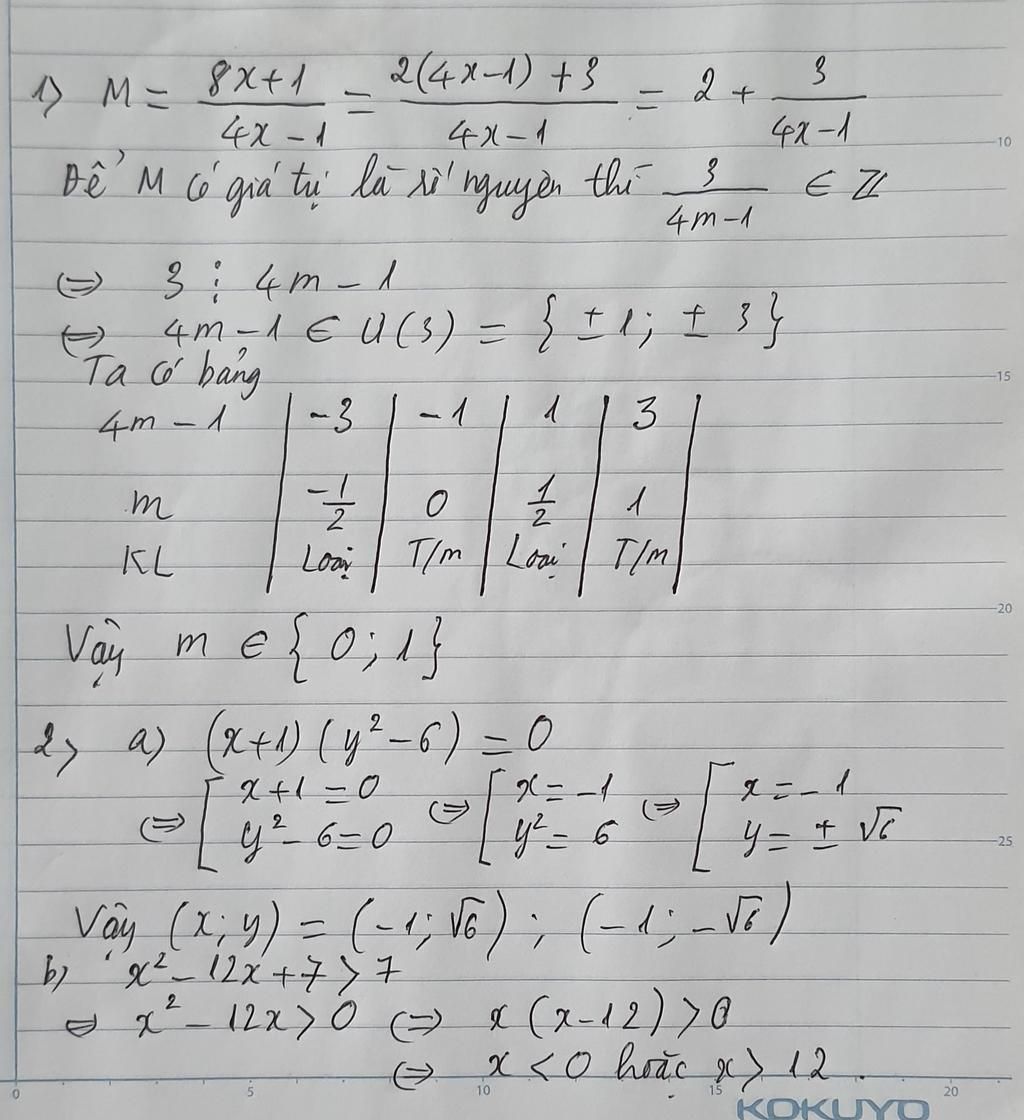 1) M = \frac{8x+1}{4x-1} = \frac{2(4x-1)+3}{4x-1} = 2 + \frac{3}{4x-1}
Để M có giá trị là số nguyên thì \frac{3}{4m-1} ∈ ℤ
⇔ 3 ⋮ 4m - 1
⇔ 4m-1 ∈ Ư(3) = {±1; ±3}
Ta có bảng
4m - 1 | -3 | -1 | 1 | 3 |
m | -\frac{1}{2} | 0 | \frac{1}{2} | 1 |
KL | Loại | T/m | Loại | T/m |
Vậy m ∈ {0; 1}
2) a) (x+1)(y²-6) = 0
⇔ [ x+1=0 ⇔ [ x=-1 ⇔ [ x=-1
y²-6=0 y²=6 y=±√6
Vậy (x; y) = (-1; √6); (-1; -√6)
b) x²-12x+7>7
⇔ x²-12x>0 ⇔ x(x-12)>0
⇔ x<0 hoặc x>12.
10
15
20
25
0 5 10 15 20
KOKUYO